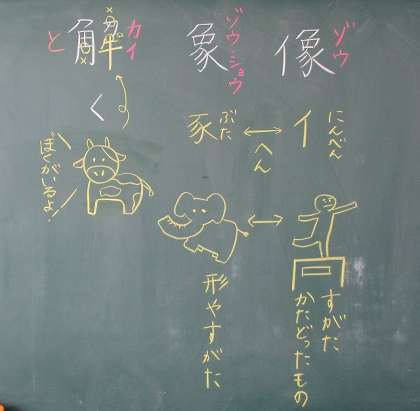 像
ゾウ
イ
にんべん
すがた
かたどったもの
へん
象
ゾウ・ショウ
豕
ぶた
形やすがた
解く
カイ
と
ぼくがいるよ!